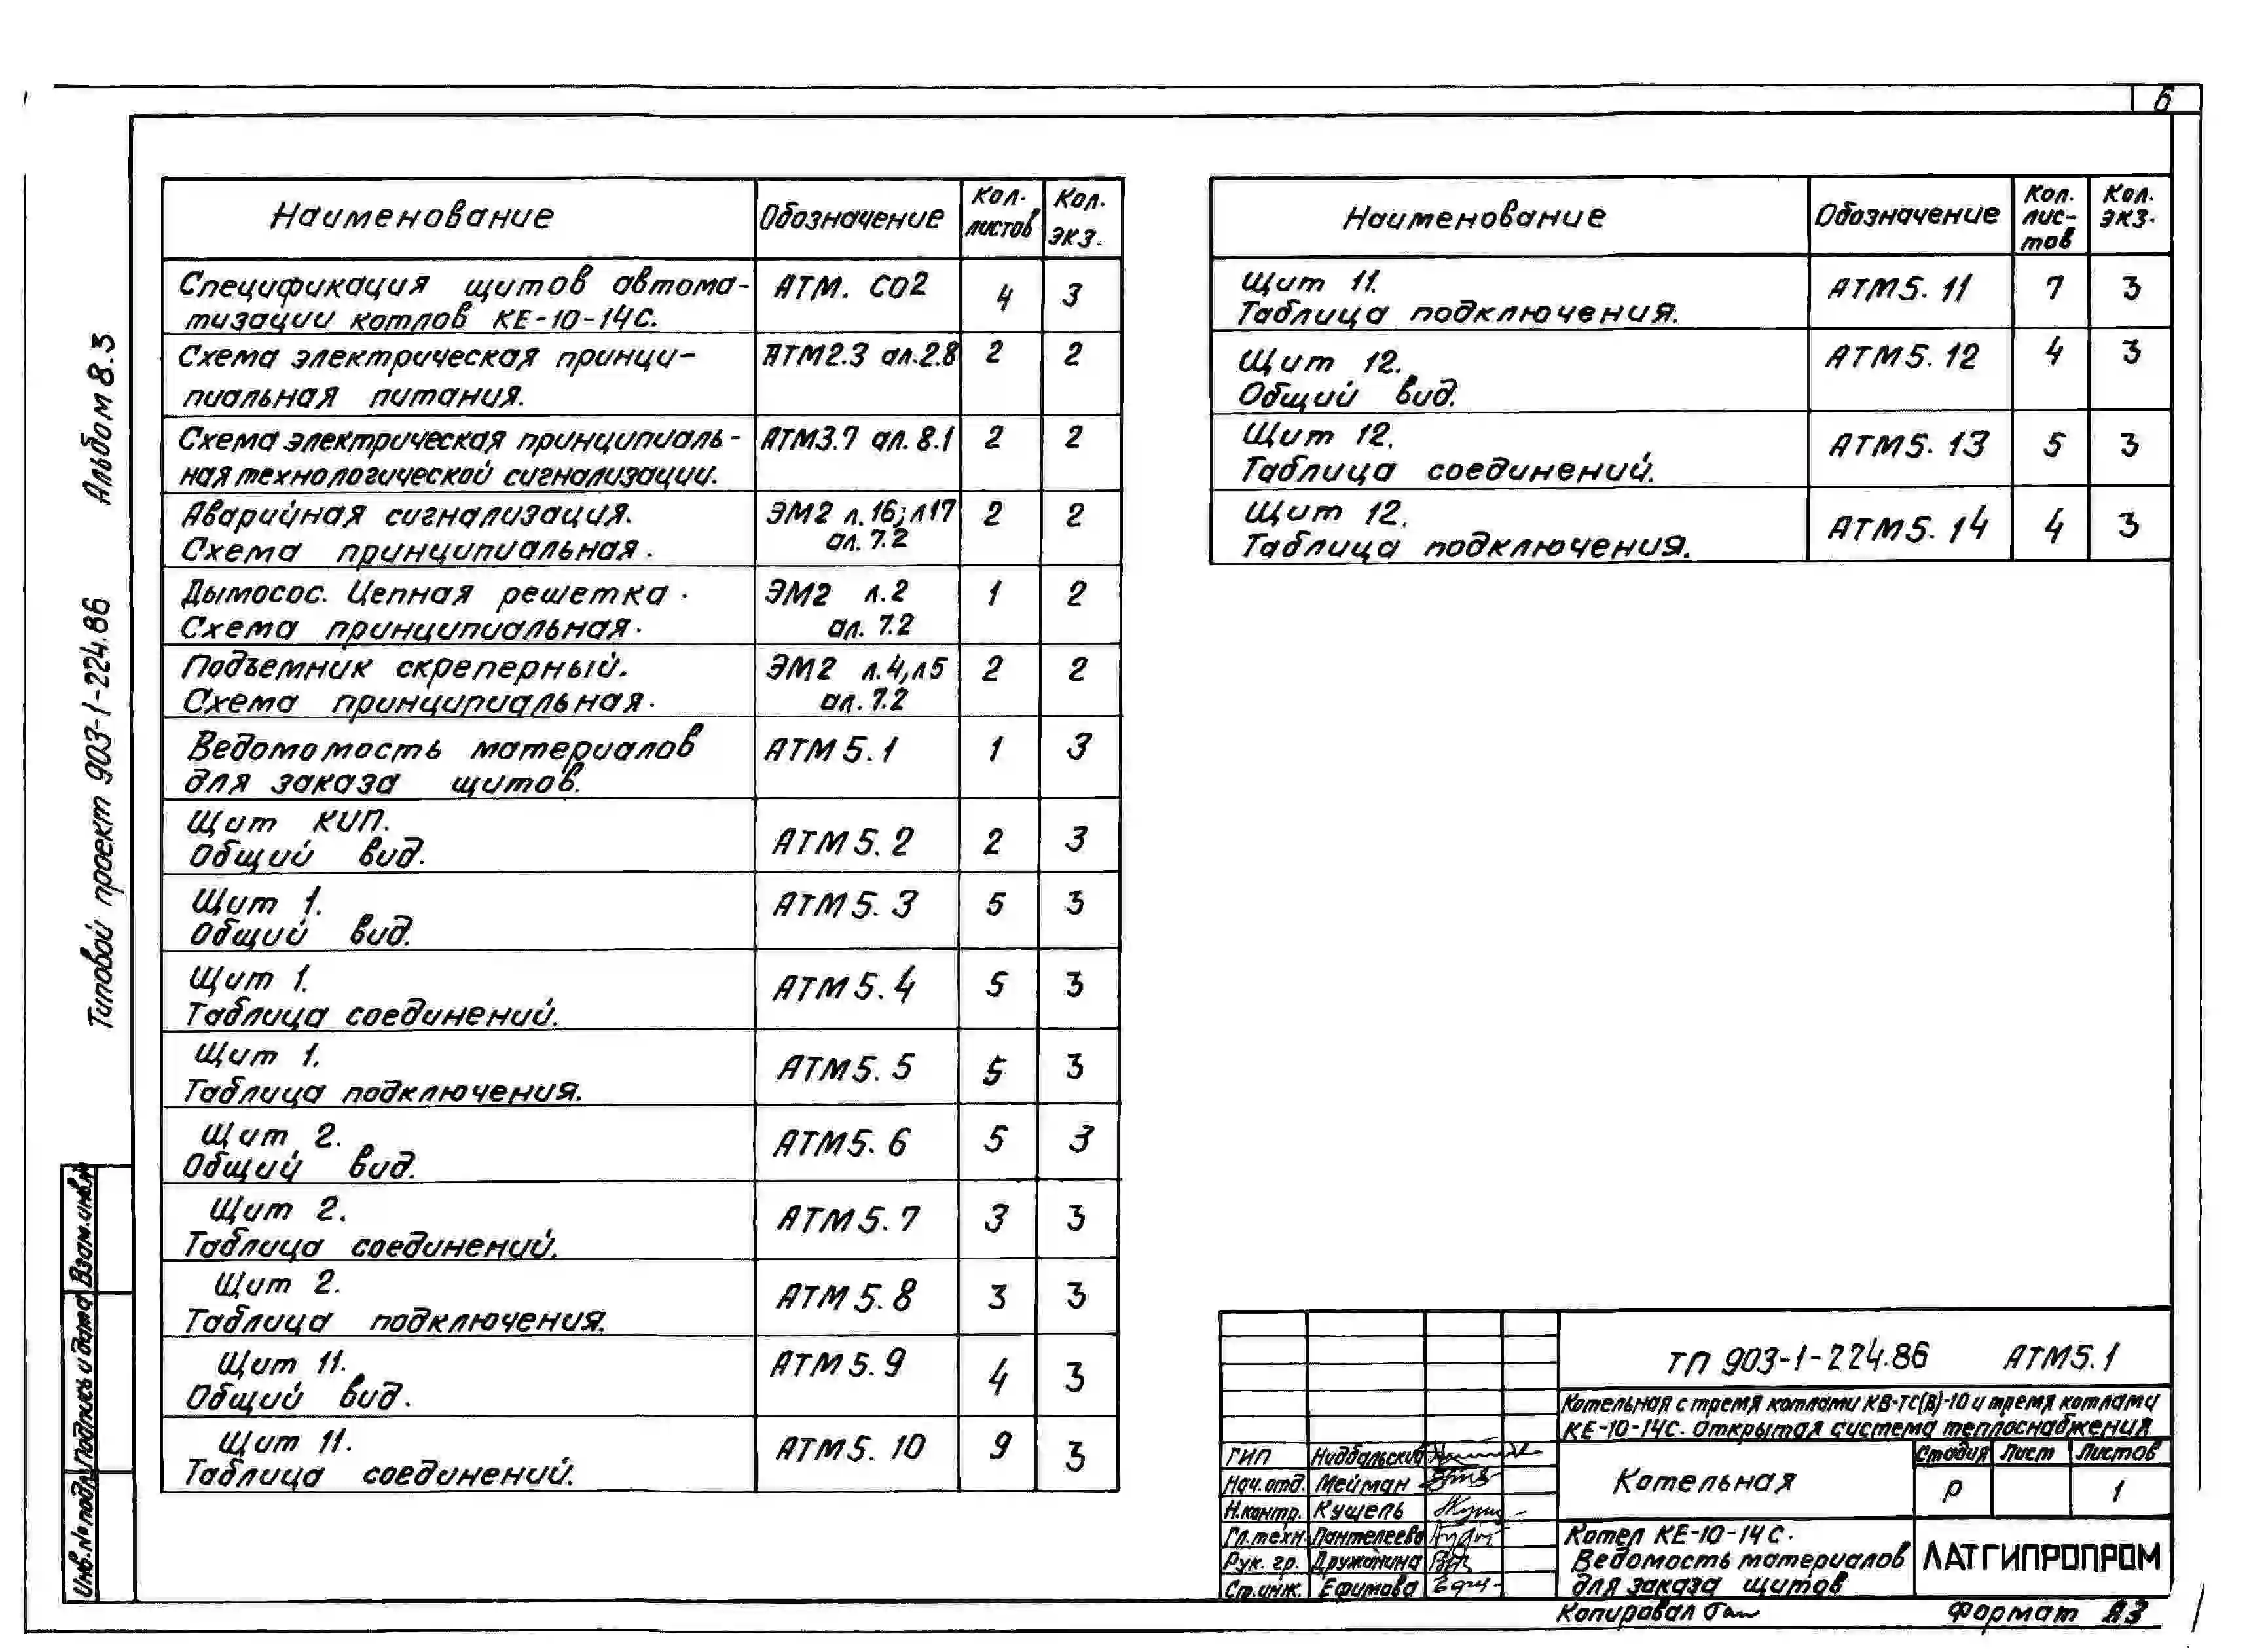 6
Альбом 8.3
Типовой проект 903-1-224.86
Взам.инв.№
Подпись и дата
Инв.№ подл.
Наименование
Обозначение
Кол. листов
Кол. экз.
Спецификация щитов автома-
тизации котлов КЕ-10-14С.
АТМ. СО2
4
3
Схема электрическая принци-
пиальная питания.
АТМ2.3 ал.2.8
2
2
Схема электрическая принципиаль-
ная технологической сигнализации.
АТМ3.7 ал. 8.1
2
2
Аварийная сигнализация.
Схема принципиальная.
ЭМ2 л.16; л17
ал. 7.2
2
2
Дымосос. Цепная решетка.
Схема принципиальная.
ЭМ2 л.2
ал. 7.2
1
2
Подъемник скреперный.
Схема принципиальная.
ЭМ2 л.4, л5
ал. 7.2
2
2
Ведомомость материалов
для заказа щитов.
АТМ 5.1
1
3
Щит КИП.
Общий вид.
АТМ 5.2
2
3
Щит 1.
Общий вид.
АТМ 5.3
5
3
Щит 1.
Таблица соединений.
АТМ 5.4
5
3
Щит 1.
Таблица подключения.
АТМ 5.5
5
3
Щит 2.
Общий вид.
АТМ5.6
5
3
Щит 2.
Таблица соединений.
АТМ 5.7
3
3
Щит 2.
Таблица подключения.
АТМ 5.8
3
3
Щит 11.
Общий вид.
АТМ 5.9
4
3
Щит 11.
Таблица соединений.
АТМ5.10
9
3
Наименование
Обозначение
Кол. лис-
тов
Кол. экз.
Щит 11.
Таблица подключения.
АТМ5.11
7
3
Щит 12.
Общий вид.
АТМ5.12
4
3
Щит 12.
Таблица соединений.
АТМ5.13
5
3
Щит 12.
Таблица подключения.
АТМ5.14
4
3
ТП 903-1-224.86 АТМ5.1
Котельная с тремя котлами КВ-ТС(В)-10 и тремя котлами
КЕ-10-14С. Открытая система теплоснабжения
ГИП Нидбальский
Нач.отд. Мейман
Н.контр. Кушель
Гл.техн. Пантелеева
Рук. гр. Дружинина
Ст.инж. Ефимова
Котельная
Стадия Лист Листов
Р 1
Котел КЕ-10-14С.
Ведомость материалов
для заказа щитов
ЛАТГИПРОПРОМ
Копировал
Формат А3